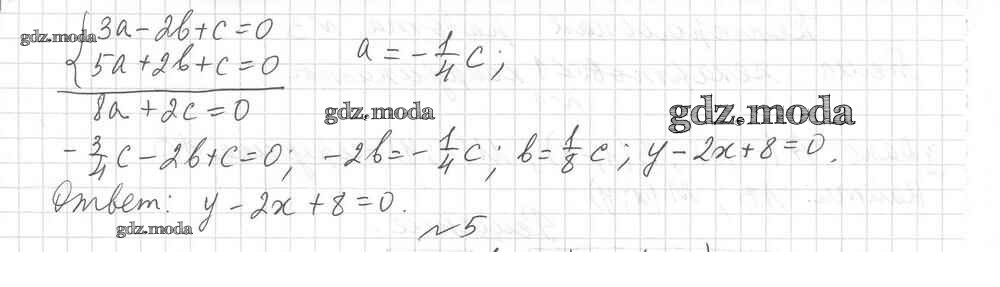 gdz.moda
{3a - 2b + c = 0
5a + 2b + c = 0
8a + 2c = 0
a = -1/4 c;
gdz.moda
gdz.moda
-3/4 c - 2b + c = 0; -2b = -1/4 c; b = 1/8 c; y - 2x + 8 = 0.
Ответ: y - 2x + 8 = 0.
gdz.moda
№5